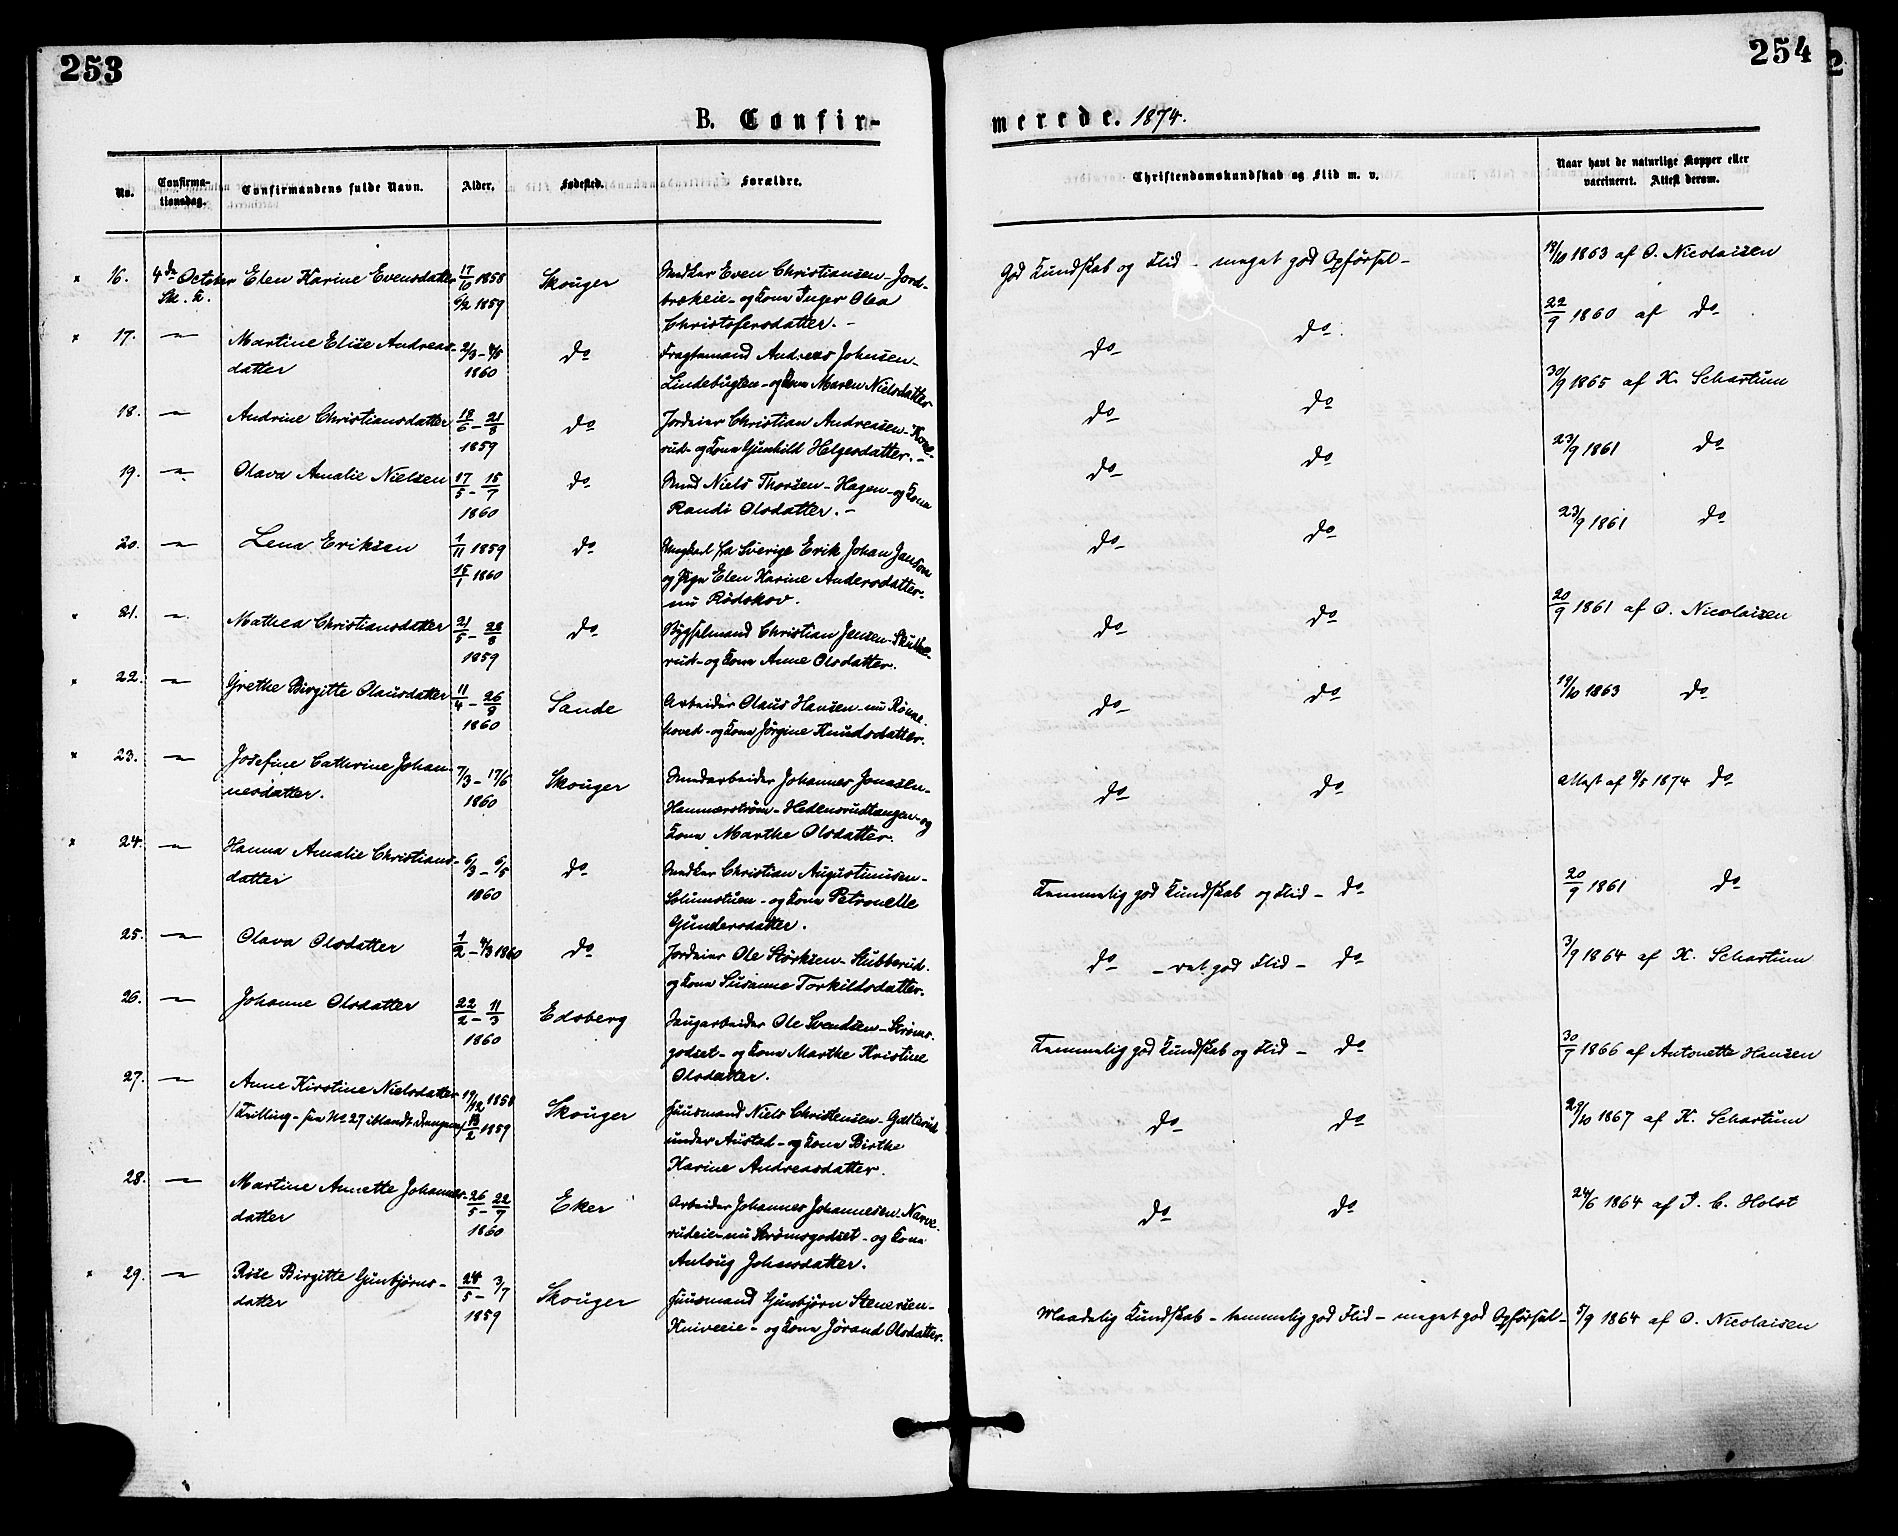 253
254
B. Confir-
merede. 1874.
No.
Confirma-
tionsdag.
Confirmandens fulde Navn.
Alder.
Fødested.
Forældre.
Christendomskundskab og Flid m. v.
Naar havt de naturlige Kopper eller
vaccineret. Attest derom.
16. 4de October Elen Karine Evensdatter 17/10 1858 Skouger Even Christiansen - Jord-
Sk. K. 6/2 1859 brekeie - og Kone Inger Olea
Christofersdatter. -
God Kundskab og Flid - meget god Opførsel - 13/10 1863 af O. Nicolaisen
17. — Martine Elise Andreas- 2/3 - 4/5 do Fragtemand Andreas Johnsen -
datter 1860 Lindebugten - og Kone Maren Nielsdatter
do do 22/9 1860 af do
18. — Andrine Christiansdatter 18/6 - 21/8 do Jordeier Christian Andreasen - Kone-
1859 rud - og Kone Gunhild Helgesdatter. -
do do 30/9 1865 af K. Schartum
19. — Olava Amalie Nielsen 17/5 - 15/7 do Niels Thorsen - Hagen - og Kone
1860 Randi Olsdatter. -
do do 23/9 1861 do
20. — Lena Eriksen 1/11 1859 do Ungkarl fra Sverige Erik Johan Janson
15/1 1860 og Pige Elen Karine Andersdatter -
nu Rødskov.
do do 23/9 1861 do
21. — Mathea Christiansdatter 21/5 - 28/8 do Bygselmand Christian Jensen - Skutte-
1859 rud - og Kone Anne Olsdatter.
do do 20/9 1861 af O. Nicolaisen
22. — Grethe Birgitte Olausdatter 11/4 - 26/9 Sande Arbeider Olaus Hansen - nu Rønne-
1860 hoved - og Kone Jørgine Knudsdatter.
do do 19/10 1863 do
23. — Josefine Cathrine Johan- 7/3 - 17/6 Skouger Johannes Jonasen -
nesdatter. 1860 Hammerstrøm - Hedensrudtangen - og
Kone Marthe Olsdatter.
do do Attest 9/5 1874 do
24. — Hanna Amalie Christians- 6/3 - 6/5 do Christian Augustinusen -
datter 1860 Solumstuen - og Kone Petronelle
Gundersdatter.
Temmelig god Kundskab og Flid - do 20/9 1861 do
25. — Olava Olsdatter 1/2 - 4/3 1860 do Jordeier Ole Størksen - Stubberud -
og Kone Susanne Torkildsdatter.
do - ret god Flid - do 3/9 1864 af K. Schartum
26. — Johanne Olsdatter 22/2 - 11/3 Edsberg Ole Svendsen - Strøms-
1860 godset - og Kone Marthe Kristine
Olsdatter.
Temmelig god Kundskab og Flid - do 30/7 1866 af Antonette Hansen
27. — Anne Kirstine Nielsdatter 19/12 1858 Skouger Huusmand Niels Christensen - Galterud
(Tvilling - see No 27 iblandt Drengene) 2 1859 under Austad - og Kone Birthe
Karine Andreasdatter.
do do 29/10 1867 af K. Schartum
28. — Martine Annette Johannes- 26/5 - 22/7 Eker Arbeider Johannes Johannesen - Narve-
datter 1860 rudeie - nu Strømsgodset - og Kone
Anlaug Johnsdatter.
do do 24/6 1864 af J. C. Holst
29. — Rose Birgitte Gunbjørns- 24/5 - 3/7 Skouger Huusmand Gunbjørn Stenersen -
datter 1859 Kniveeie - og Kone Jørand Olsdatter.
Maadelig Kundskab - temmelig god Flid - meget god Opførsel - 5/9 1864 af O. Nicolaisen